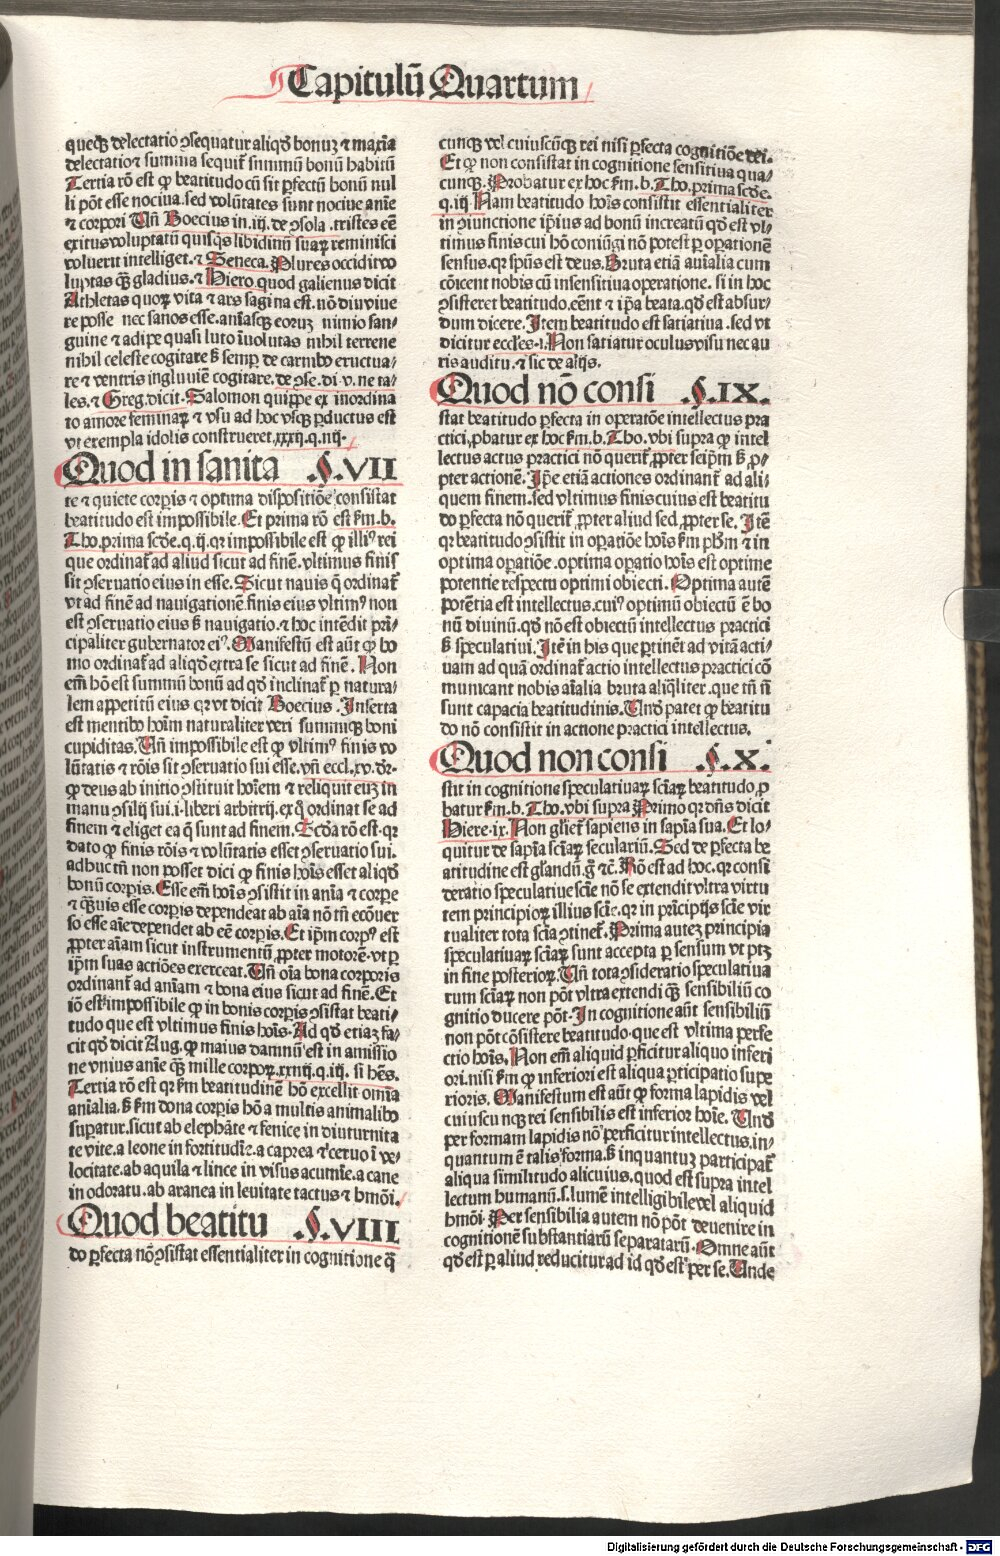 Capitulū Quartum
queqꝫ delectatio ꝯsequatur aliqď bonuꝫ ⁊ maxīa
delectatioē summa sequit̃ summū bonū habitū
Tertia rō est ꝙ beatitudo cū sit ꝑfectū bonū nul
li pōt esse nociua. sed volūtates sunt nociue anīe
⁊ corpori Uñ Boecius in .iij. de ꝯsola .tristes eē
exitus voluptatū quisq̃s libidinū suaꝝ reminisci
voluerit intelliget. ⁊ Seneca. Plures occidit vo
luptas q̃ꝫ gladius. ⁊ Hiero quod galienus dicit
Athletas quoꝝ vita ⁊ ars sagina est. nō diu viue
re posse nec sanos esse. aniasqꝫ eoruꝫ nimio san⸗
guine ⁊ adipe quasi luto īuolutas nihil terrene
nihil celeste cogitare ẜ semꝑ de carnibꝰ eructua⸗
re ⁊ ventris ingluuiē cogitare. de ꝯse. di v. ne ta⸗
les. ⁊ Greg. dicit. Salomon quippe ex inordina
to amore feminaꝝ ⁊ vsu ad hoc vsqꝫ ꝑductus est
vt exempla idolis construeret. xxxij. q. iiij.
Quod in sanita §.VII
te ⁊ quiete corꝑis ⁊ optima dispositiōe consistat
beatitudo est impossibile. Et prima rō est ẜm. b.
Tho. prima scďe. q. ij. qꝛ impossibile est ꝙ illiꝰ rei
que ordinat̃ ad aliud sicut ad finē. vltimus finis
sit ꝯseruatio eius in esse. Sicut nauis q̄ ordinat̃
vt ad finē ad nauigationē. finis eius vltimꝰ non
est ꝯseruatio eius ẜ nauigatio. ⁊ hoc intēdit prī⸗
cipaliter gubernator eiꝰ. Manifestū est aūt ꝙ ho
mo ordinat̃ ad aliqď extra se sicut ad finē. Non
em̄ hō est summū bonū ad qď inclinat̃ ꝑ natura⸗
lem appetitū eius qꝛ vt dicit Boecius. Inserta
est mentibꝰ hoīm naturaliter veri summiqꝫ boni
cupiditas. Uñ impossibile est ꝙ vltimꝰ finis vo
lūtatis ⁊ rōis sit ꝯseruatio sui esse. vñ eccl. xv. dr̄.
ꝙ deus ab initio ꝯstituit hoīem ⁊ reliquit euꝫ in
manu ꝯsilij sui. i. liberi arbitrij. ex q̄ ordinat se ad
finem ⁊ eliget ea q̄ sunt ad finem. Scďa rō est. qꝛ
dato ꝙ finis rōis ⁊ volūtatis esset ꝯseruatio sui.
adhuc tñ non posset dici ꝙ finis hoīs esset aliqď
bonū corꝑis. Esse em̄ hoīs ꝯsistit in anīa ⁊ corꝑe
⁊ q̃ꝫuis esse corꝑis dependeat ab aīa nō tñ ecōuer
so esse aīe dependet ab eē corꝑis. Et ip̄m corpꝰ est
ꝓpter aīam sicut instrumentū ꝓpter motorē. vt ꝑ
ip̄m suas actiōes exerceat. Uñ oīa bona corporis
ordinant̃ ad aniam ⁊ bona eius sicut ad finē. Et
iō est impossibile ꝙ in bonis corꝑis ꝯsistat beati⸗
tudo que est vltimus finis hoīs. Ad qď etiaꝫ fa⸗
cit qď dicit Aug. ꝙ maius damnū est in amissio
ne vnius anīe q̃ꝫ mille corpoꝝ. xxiij. q. iij. si hēs.
Tertia rō est qꝛ ẜm beatitudinē hō excellit omīa
anīalia. ẜ ẜm dona corꝑis hō a multis animalibꝰ
suꝑatur. sicut ab elephāte ⁊ fenice in diuturnita
te vite. a leone in fortitudīe. a caprea ⁊ ceruo ī ve⸗
locitate. ab aquila ⁊ lince in visus acumīe. a cane
in odoratu. ab aranea in leuitate tactus ⁊ hmōi.
Quod beatitu §.VIII
do ꝑfecta nō ꝯsistat essentialiter in cognitione q̄
cunqꝫ vel cuiuscūqꝫ rei nisi ꝑfecta cognitiōe dei.
Et ꝙ non consistat in cognitione sensitiua qua⸗
cunqꝫ. Probatur ex hoc ẜm. b. Tho. prima scďe.
q. iij Nam beatitudo hoīs consistit essentialiter
in ꝯiunctione ip̄ius ad bonū increatū qď est vl⸗
timus finis cui hō coniūgi nō potest ꝑ oꝑationē
sensus. qꝛ spūs est deus. Bruta etiā aīalia cum
cōicent nobis cū insensitiua operatione. si in hoc
ꝯsisteret beatitudo. eēnt ⁊ ip̄a beata. qď est absur⸗
dum dicere. Item beatitudo est satiatiua. sed vt
dicitur eccl̃es. i. Non satiatur oculus visu nec au
ris auditu. ⁊ sic de alijs.
Quod nō consi §.IX.
stat beatitudo ꝑfecta in oꝑatōe intellectus pra
ctici. ꝓbatur ex hoc ẜm. b. Tho. vbi supra ꝙ intel
lectus actus practici nō querit̃ ꝓpter seip̄m ẜ ꝓ⸗
pter actionē. Ip̄e etiā actiones ordinant̃ ad ali⸗
quem finem. sed vltimus finis cuius est beatitu
do ꝑfecta nō querit̃ ꝓpter aliud sed ꝓpter se. Itē
qꝛ beatitudo ꝯsistit in oꝑatiōe hoīs ẜm pħm ⁊ in
optima oꝑatiōe. optima oꝑatio hoīs est optime
potentie respectu optimi obiecti. Optima autē
potētia est intellectus. cuiꝰ optimū obiectū ē bo
nū diuinū. qď nō est obiectū intellectus practici
ẜ speculatiui. Itē in his que ꝑtinēt ad vitā acti⸗
uam ad quā ordinat̃ actio intellectus practici cō
municant nobis aīalia bruta aliq̄liter. que tñ nō
sunt capacia beatitudinis. Unď patet ꝙ beatitu
do nō consistit in actione practici intellectus.
Quod non consi §.X.
stit in cognitione speculatiuaꝝ sciaꝝ beatitudo ꝓ
batur ẜm. b. Tho. vbi supra Primo qꝛ dñs dicit
Hiere. ix. Non gliet̃ sapiens in sapīa sua. Et lo⸗
quitur de sapīa sciaꝝ seculariū. Sed de ꝑfecta be
atitudine est gl̄iandū. g̊ ⁊c̄. Rō est ad hoc. qꝛ consi
deratio speculatiue scīe nō se extendit vltra virtu
tem principioꝝ illius scīe. qꝛ in prīcipijs scīe vir
tualiter tota scīa ꝯtinet̃. Prima auteꝫ principia
speculatiuaꝝ sciaꝝ sunt accepta ꝑ sensum vt ptꝫ
in fine posterioꝝ. Uñ tota ꝯsideratio speculatiua
rum sciaꝝ non pōt vltra extendi q̃ꝫ sensibiliū co
gnitio ducere pōt. In cognitione aūt sensibiliū
non pōt cōsistere beatitudo que est vltima perfe
ctio hoīs. Non em̄ aliquid ꝑficitur aliquo inferi
ori. nisi ẜm ꝙ inferiori est aliqua ꝑticipatio supe
rioris. Manifestum est aūt ꝙ forma lapidis vel
cuiuscunqꝫ rei sensibilis est inferior hoīe. Unď
per formam lapidis nō perficitur intellectus. in⸗
quantum ē talis forma. ẜ inquantuꝫ participat̃
aliqua similitudo alicuius. quod est supra intel
lectum humanū. ſ. lumē intelligibile vel aliquid
hmōi. Per sensibilia autem nō pōt deuenire in
cognitionē substantiarū separatarū. Omne aūt
qď est ꝑ aliud reducitur ad id qď est per se. Unde
Digitalisierung gefördert durch die Deutsche Forschungsgemeinschaft - DFG